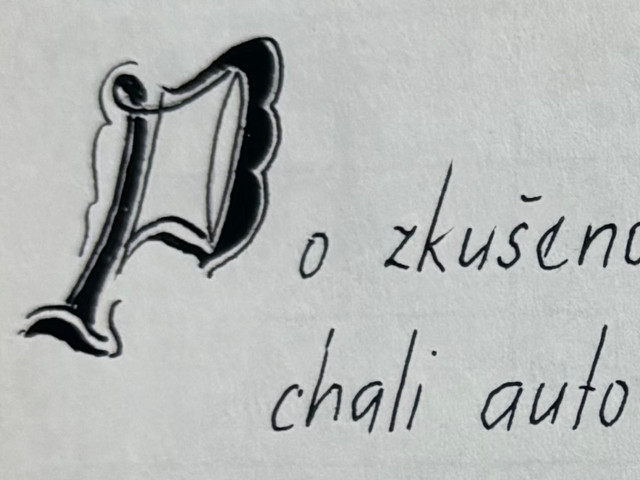 Po zkušeno
chali auto